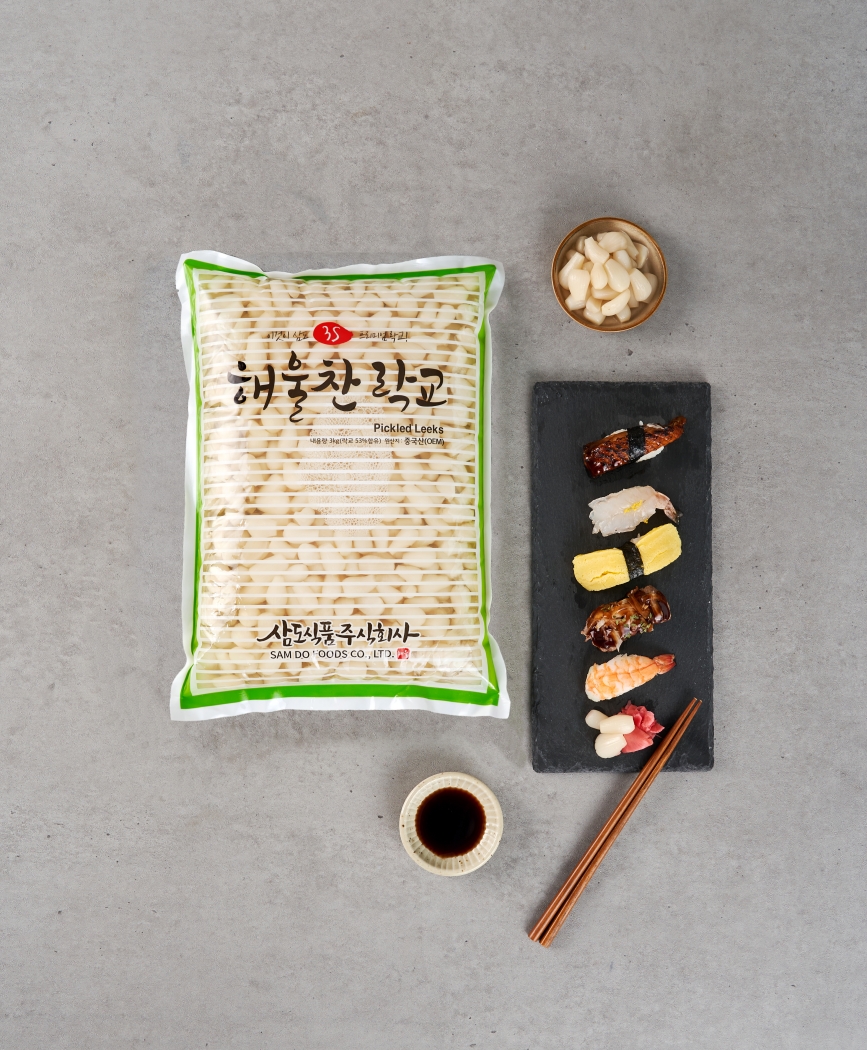 이것이 삼도 3S 프리미엄락교!
해울찬 락교
Pickled Leeks
내용량 3kg(락교 53%함유) 원산지 : 중국산(OEM)
삼도식품주식회사
SAM DO FOODS CO., LTD.